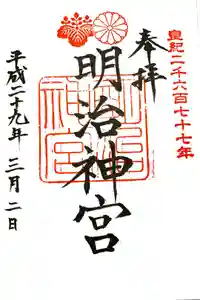 皇紀二千六百七十七年
奉拝
明治神宮
明治神宮
平成二十九年三月二日